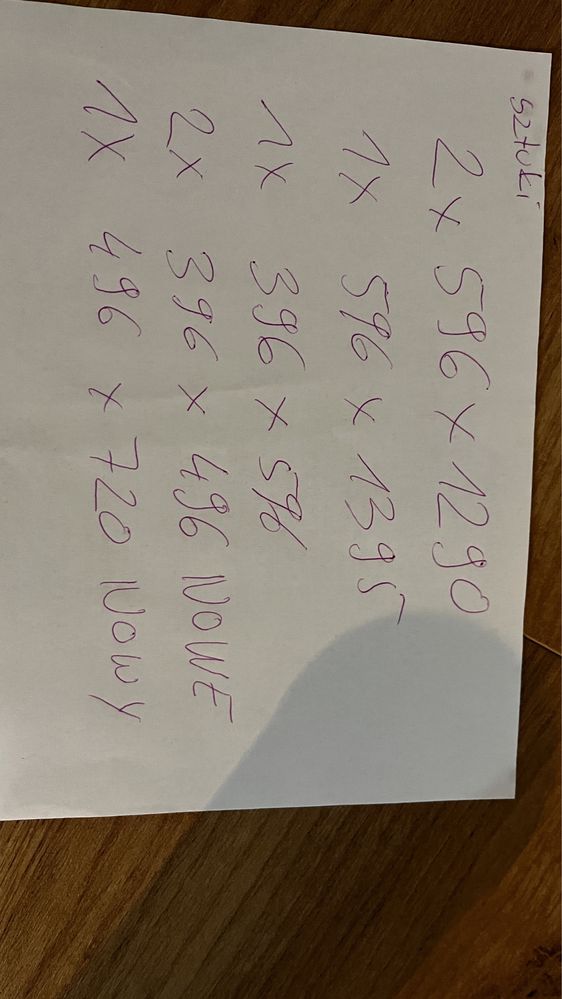 sztuki
2 x 596 x 1290
1x 596 x 1395
1x 396 x 596
2x 396 x 496 NOWE
1x 496 x 720 NOWY